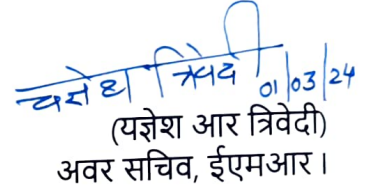 यज्ञेश त्रिवेदी 01/03/24
(यज्ञेश आर त्रिवेदी)
अवर सचिव, ईएमआर।